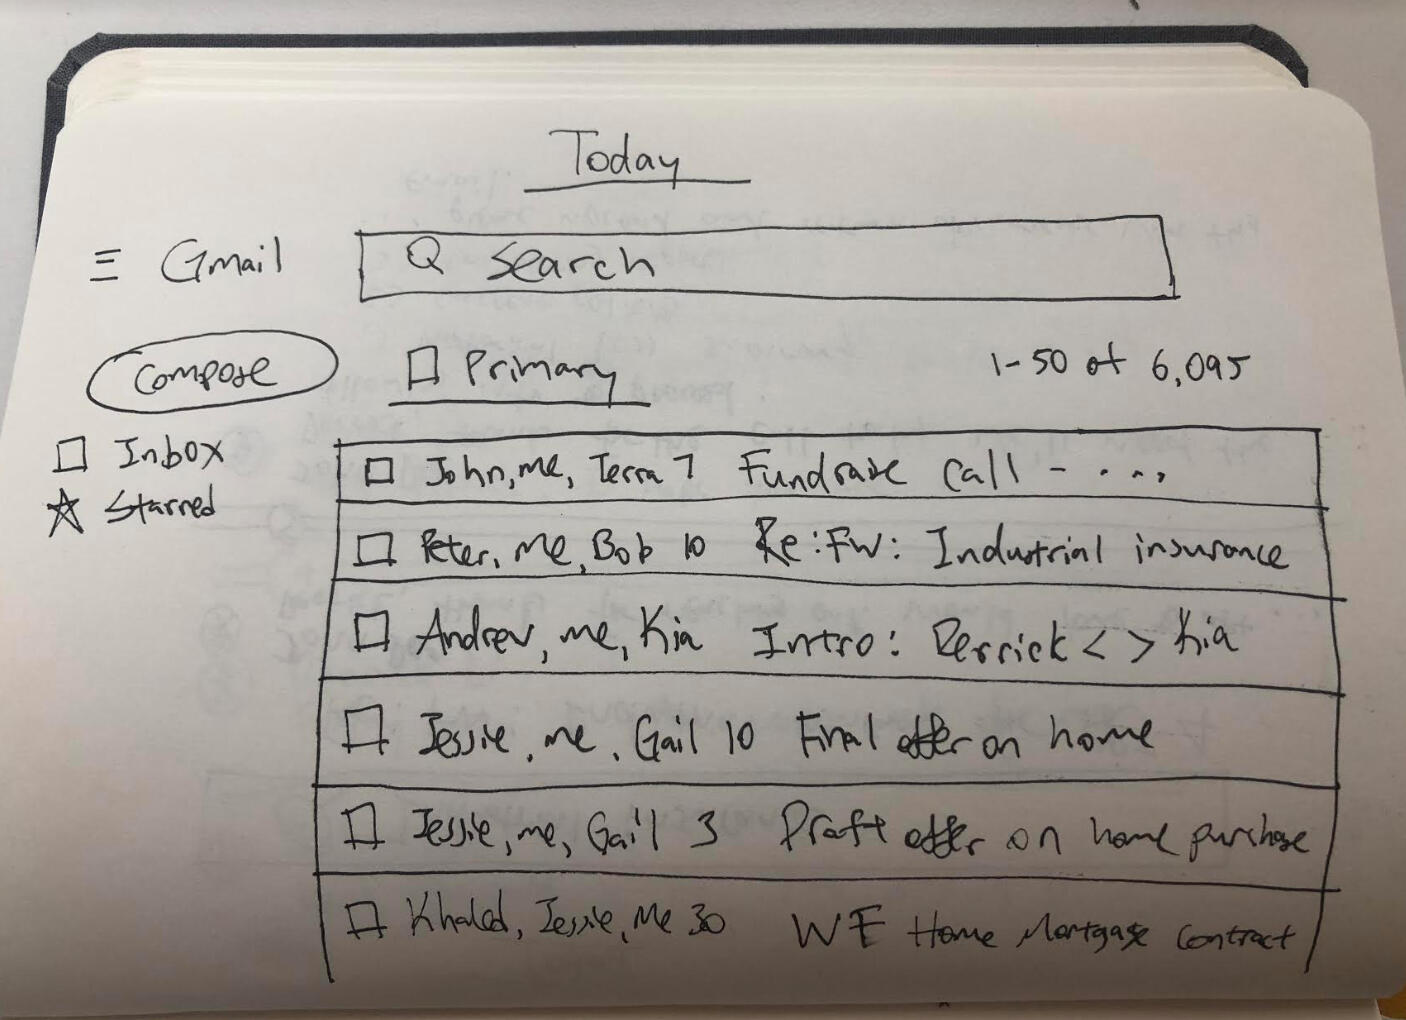 Today
Gmail Search
Compose Primary 1-50 of 6,095
Inbox
Starred
John, me, Terra 7 Fundraise call - ....
Peter, me, Bob 10 Re: FW: Industrial insurance
Andrew, me, Kia Intro: Derrick < > Kia
Jessie, me, Gail 10 Final offer on home
Jessie, me, Gail 3 Draft offer on home purchase
Khaled, Jessie, Me 30 WF Home Mortgage contract